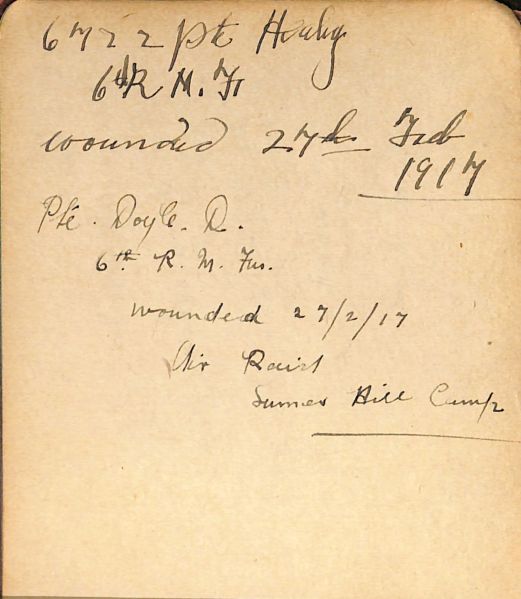 6722 Pte Healy
6th R M. F
wounded 27th Feb
1917
Pte. Doyle. D.
6th R. M. Fus.
wounded 27/2/17
Air Raid
Summer Hill Camp